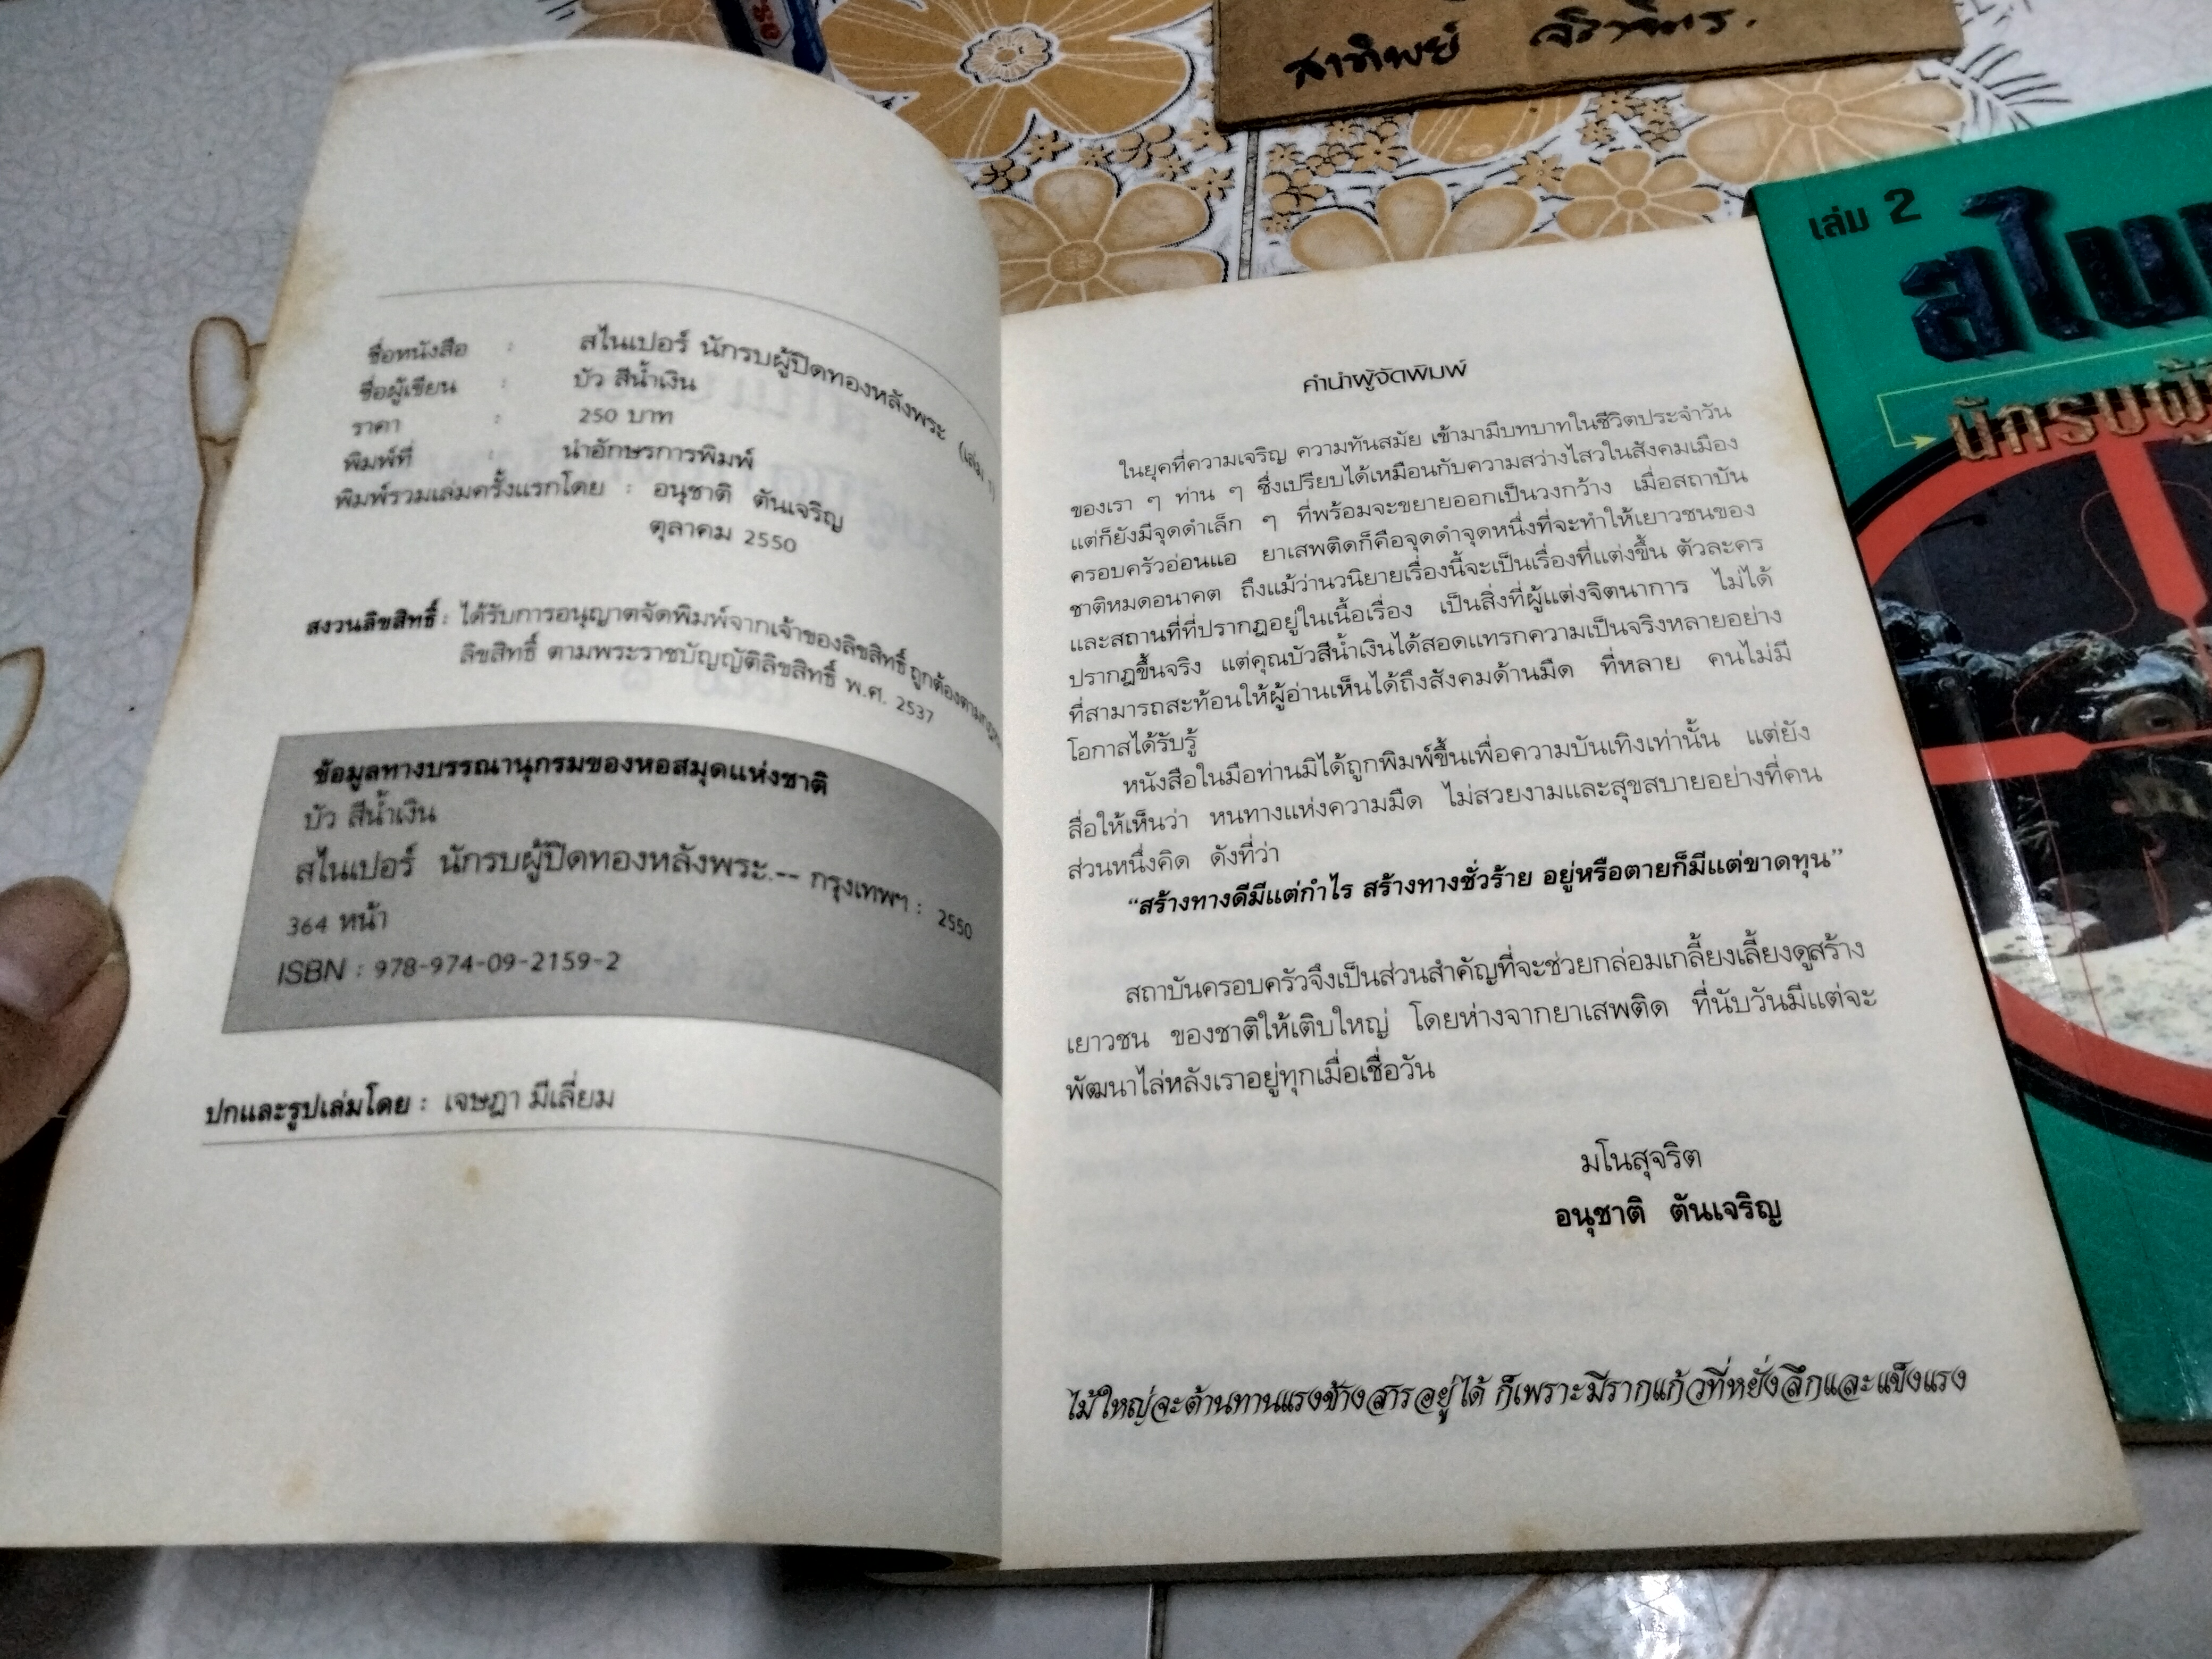 สาทิพย์
เล่ม 2
สไนเ
นักรบผู้
ชื่อหนังสือ : สไนเปอร์ นักรบผู้ปิดทองหลังพระ (เล่ม
ชื่อผู้เขียน : บัว สีน้ำเงิน
ราคา : 250 บาท
พิมพ์ที่ : นำอักษรการพิมพ์
พิมพ์รวมเล่มครั้งแรกโดย : อนุชาติ ตันเจริญ
ตุลาคม 2550
สงวนลิขสิทธิ์ : ได้รับการอนุญาตจัดพิมพ์จากเจ้าของลิขสิทธิ์ ถูกต้องตามกฎหมาย
ลิขสิทธิ์ ตามพระราชบัญญัติลิขสิทธิ์ พ.ศ. 2537
ข้อมูลทางบรรณานุกรมของหอสมุดแห่งชาติ
บัว สีน้ำเงิน
สไนเปอร์ นักรบผู้ปิดทองหลังพระ.-- กรุงเทพฯ : 2550
364 หน้า
ISBN : 978-974-09-2159-2
ปกและรูปเล่มโดย : เจษฎา มีเลี่ยม
คำนำผู้จัดพิมพ์
ในยุคที่ความเจริญ ความทันสมัย เข้ามามีบทบาทในชีวิตประจำวัน
ของเรา ๆ ท่าน ๆ ซึ่งเปรียบได้เหมือนกับความสว่างไสวในสังคมเมือง
แต่ก็ยังมีจุดดำเล็ก ๆ ที่พร้อมจะขยายออกเป็นวงกว้าง เมื่อสถาบัน
ครอบครัวอ่อนแอ ยาเสพติดก็คือจุดดำจุดหนึ่งที่จะทำให้เยาวชนของ
ชาติหมดอนาคต ถึงแม้ว่านวนิยายเรื่องนี้จะเป็นเรื่องที่แต่งขึ้น ตัวละคร
และสถานที่ที่ปรากฏอยู่ในเนื้อเรื่อง เป็นสิ่งที่ผู้แต่งจิตนาการ ไม่ได้
ปรากฏขึ้นจริง แต่คุณบัวสีน้ำเงินได้สอดแทรกความเป็นจริงหลายอย่าง
ที่สามารถสะท้อนให้ผู้อ่านเห็นได้ถึงสังคมด้านมืด ที่หลาย คนไม่มี
โอกาสได้รับรู้
หนังสือในมือท่านมิได้ถูกพิมพ์ขึ้นเพื่อความบันเทิงเท่านั้น แต่ยัง
สื่อให้เห็นว่า หนทางแห่งความมืด ไม่สวยงามและสุขสบายอย่างที่คน
ส่วนหนึ่งคิด ดังที่ว่า
“สร้างทางดีมีแต่กำไร สร้างทางชั่วร้าย อยู่หรือตายก็มีแต่ขาดทุน”
สถาบันครอบครัวจึงเป็นส่วนสำคัญที่จะช่วยกล่อมเกลี้ยงเลี้ยงดูสร้าง
เยาวชน ของชาติให้เติบใหญ่ โดยห่างจากยาเสพติด ที่นับวันมีแต่จะ
พัฒนาไล่หลังเราอยู่ทุกเมื่อเชื่อวัน
มโนสุจริต
อนุชาติ ตันเจริญ
ไม้ใหญ่จะต้านทานแรงช้างสารอยู่ได้ ก็เพราะมีรากแก้วที่หยั่งลึกและแข็งแรง